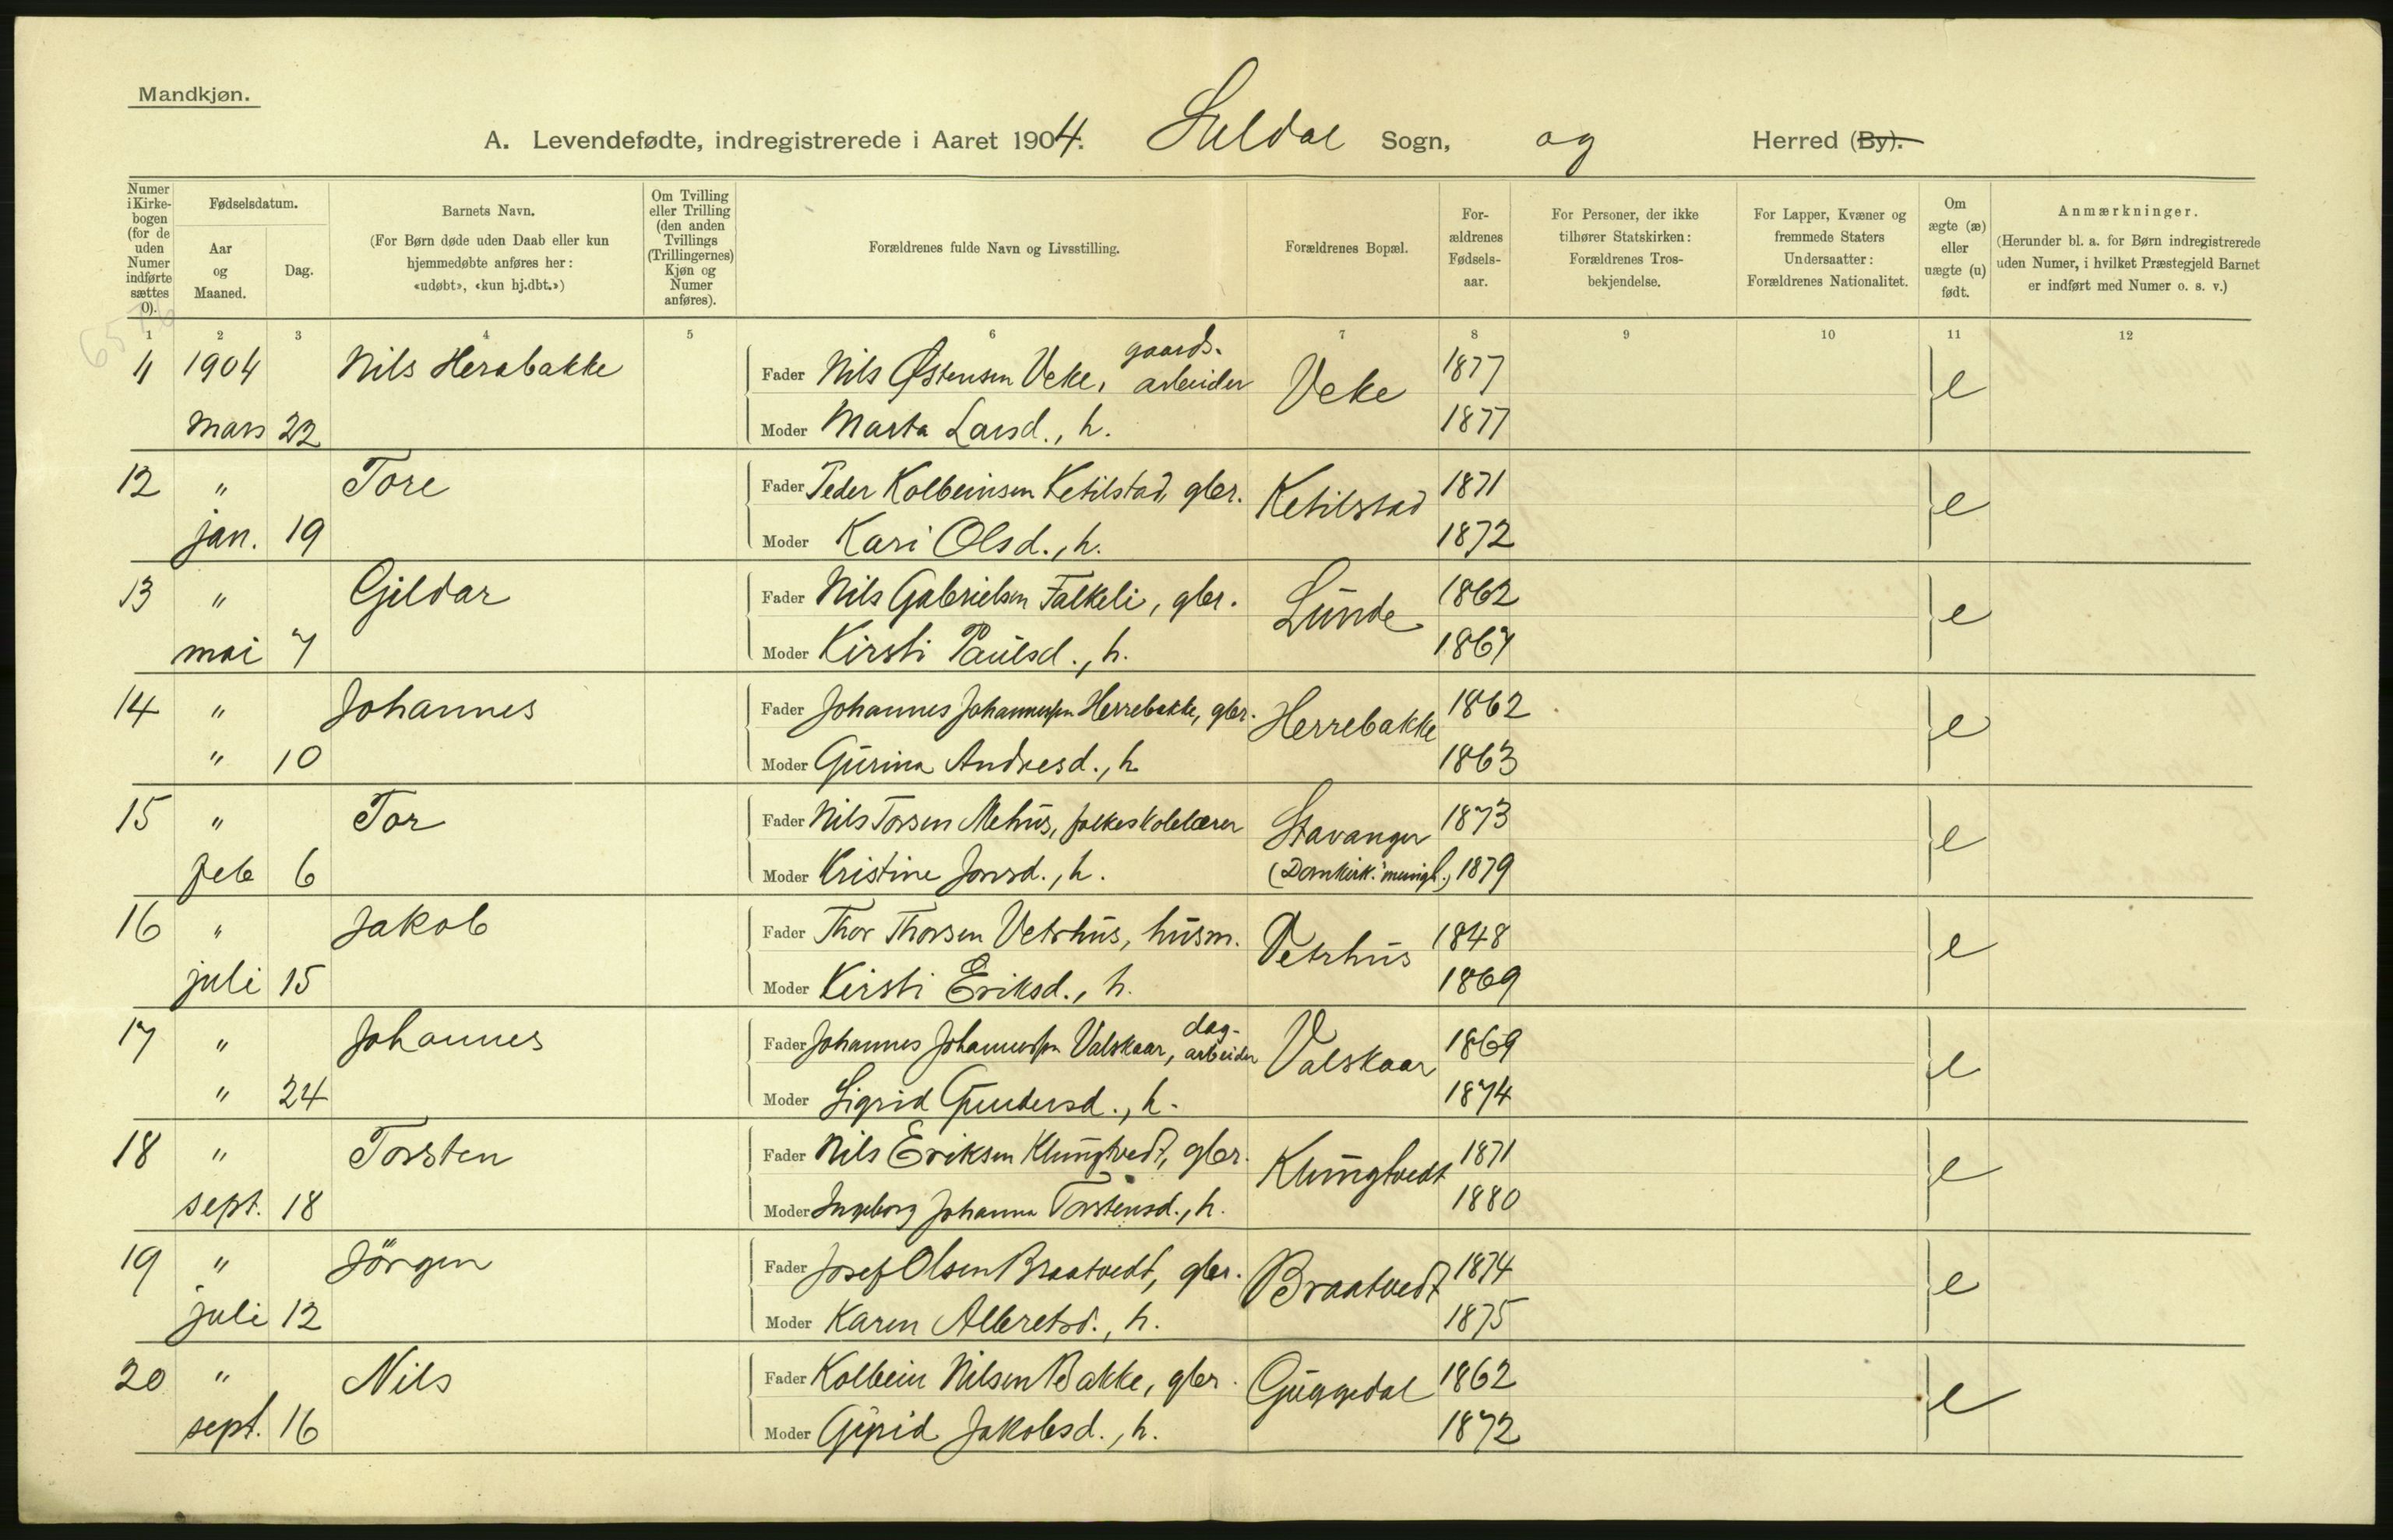 Mandkjøn.
A. Levendefødte, indregistrerede i Aaret 1904. Suldal Sogn, og Herred (By).
Numer i Kirke-bogen (for de uden Numer indførte sættes 0).
Fødselsdatum.
Aar og Maaned.
Dag.
Barnets Navn.
(For Børn døde uden Daab eller kun hjemmedøbte anføres her: «udøbt», «kun hj.dbt.»)
Om Tvilling eller Trilling (den anden Tvillings (Trillingernes) Kjøn og Numer anføres).
Forældrenes fulde Navn og Livsstilling.
Forældrenes Bopæl.
For-ældrenes Fødsels-aar.
For Personer, der ikke tilhører Statskirken: Forældrenes Tros-bekjendelse.
For Lapper, Kvæner og fremmede Staters Undersaatter: Forældrenes Nationalitet.
Om ægte (æ) eller uægte (u) født.
Anmærkninger.
(Herunder bl. a. for Børn indregistrerede uden Numer, i hvilket Præstegjeld Barnet er indført med Numer o. s. v.)
1 2 3 4 5 6 7 8 9 10 11 12
11 1904 Nils Herabakke Fader Nils Østensen Veke, gaards-arbeider Veke 1877 e
mars 22 Moder Marta Larsd., h. 1877
12 " Tore Fader Peder Kolbeinsen Ketilstad, gbr. Ketilstad 1871 e
jan. 19 Moder Kari Olsd., h. 1872
13 " Gjildar Fader Nils Gabrielsen Falkeli, gbr. Lunde 1862 e
mai 7 Moder Kirsti Paulsd., h. 1867
14 " Johannes Fader Johannes Johannessen Herrebakke, gbr. Herrebakke 1862 e
" 10 Moder Gurina Andresd., h 1863
15 " Tor Fader Nils Torsen Mehus, folkeskolelærer Stavanger 1873 e
feb 6 Moder Kristine Jonsd., h. (Domkirk. menigh.) 1879
16 " Jakob Fader Thor Thorsen Vetrhus, husm. Vetrhus 1848 e
juli 15 Moder Kirsti Eriksd., h. 1869
17 " Johannes Fader Johannes Johannessen Valskaar, dag-arbeider Valskaar 1869 e
" 24 Moder Sigrid Gundersd., h. 1874
18 " Torsten Fader Nils Eriksen Klungtvedt, gbr. Klungtvedt 1871 e
sept. 18 Moder Ingeborg Johanna Torstensd., h. 1880
19 " Jörgen Fader Josef Olsen Braatvedt, gbr. Braatvedt 1874 e
juli 12 Moder Karen Albretsd., h. 1875
20 " Nils Fader Kolbein Nilsen Bakke, gbr. Guggedal 1862 e
sept. 16 Moder Gyrid Jakobsd., h. 1872